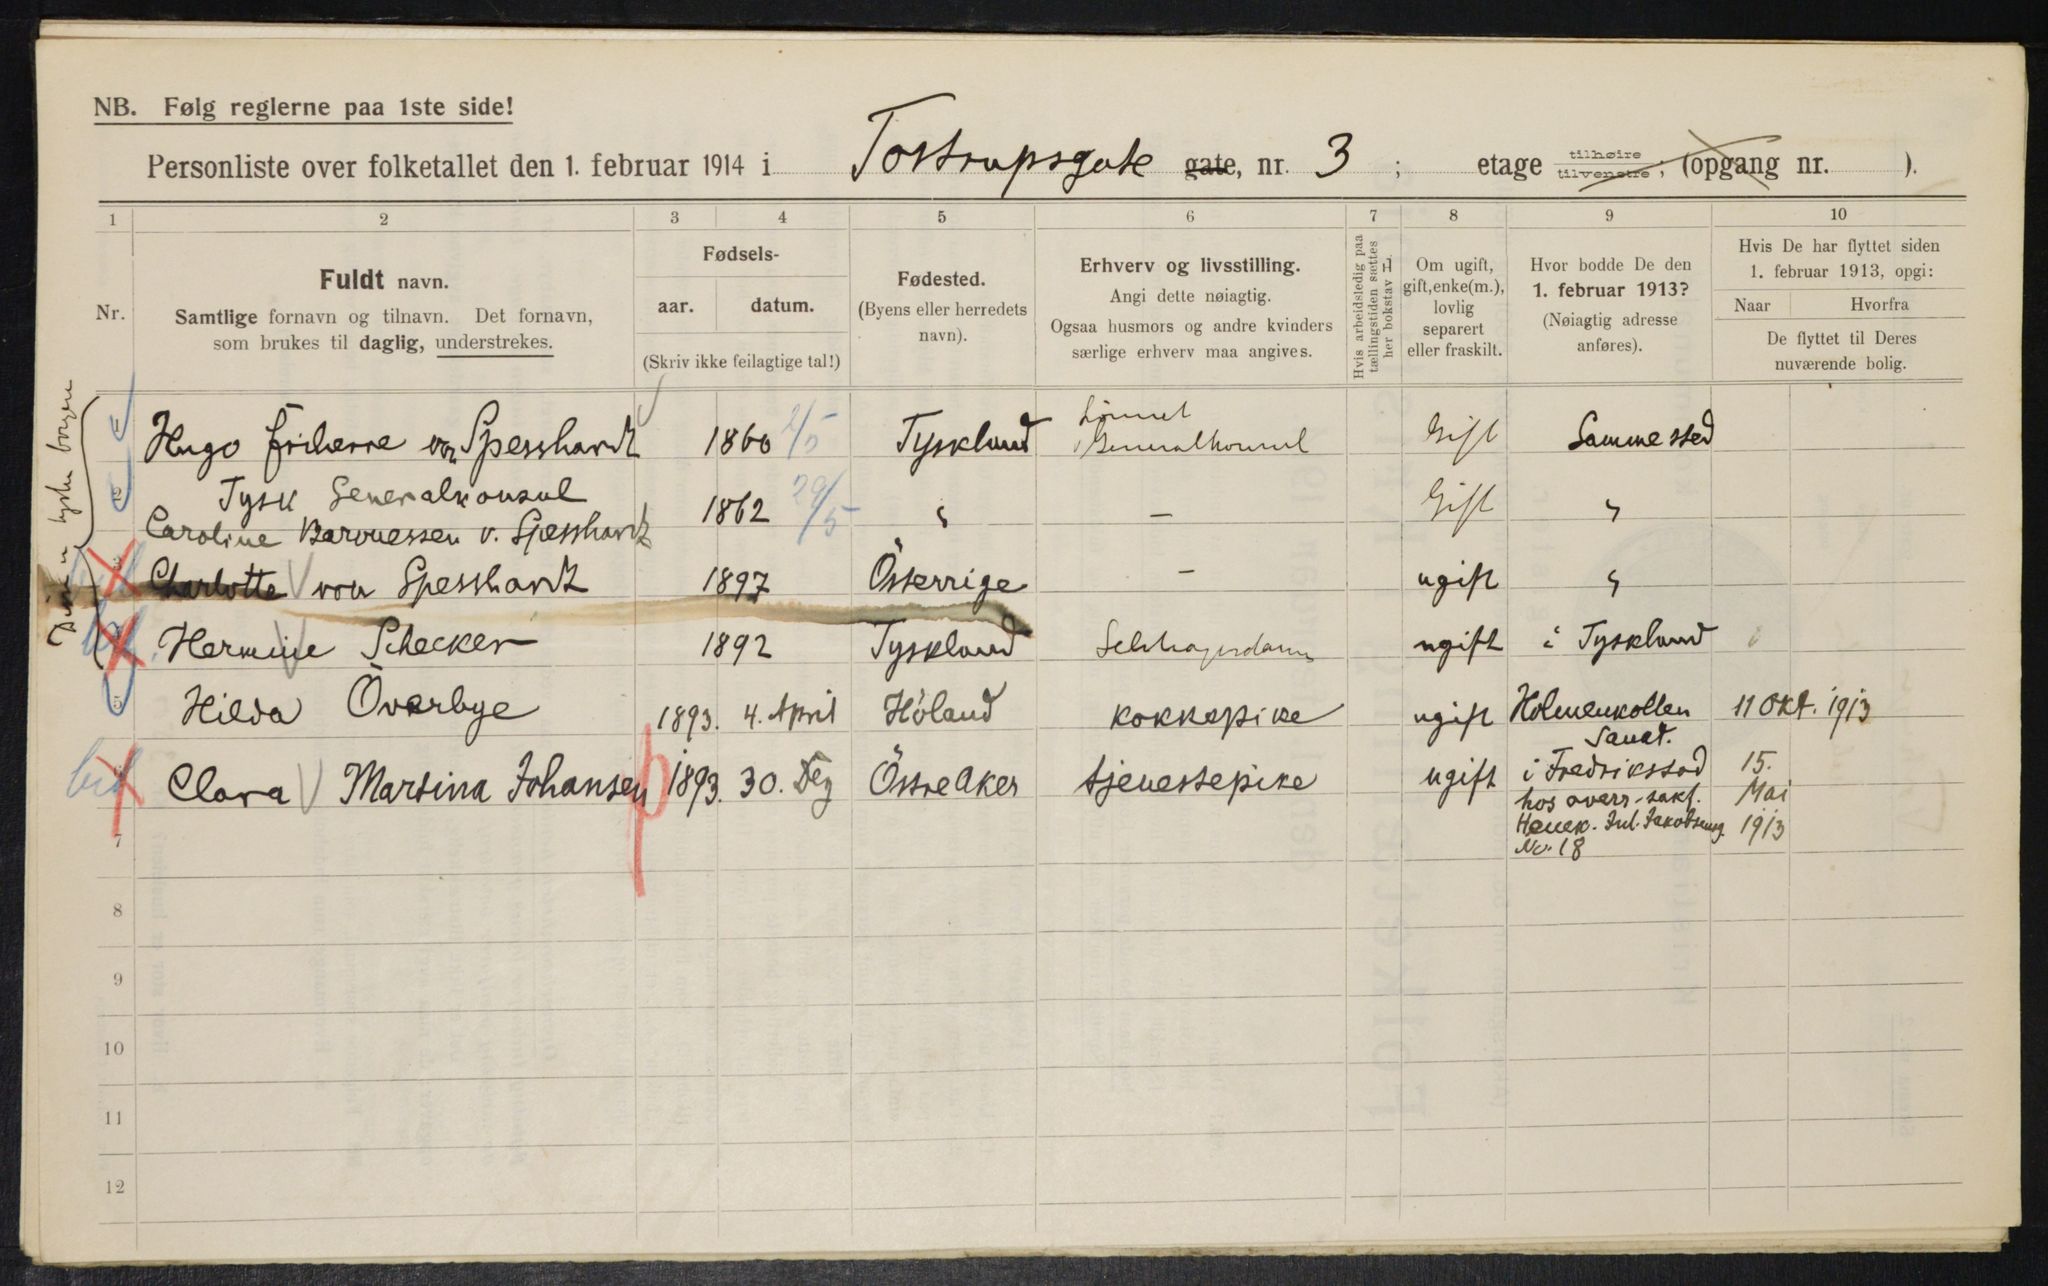 NB. Følg reglerne paa 1ste side!
Personliste over folketallet den 1. februar 1914 i Tostrupsgate gate, nr. 3 ; etage tilhøire tilvenstre ; (opgang nr. ).
1 2 3 4 5 6 7 8 9 10
Nr.
Fuldt navn.
Samtlige fornavn og tilnavn. Det fornavn,
som brukes til daglig, understrekes.
Fødsels-
aar. datum.
(Skriv ikke feilagtige tal!)
Fødested.
(Byens eller herredets
navn).
Erhverv og livsstilling.
Angi dette nøiagtig.
Ogsaa husmors og andre kvinders
særlige erhverv maa angives.
Hvis arbeidsledig paa
tællingstiden sættes
her bokstav L
Om ugift,
gift, enke(m.),
lovlig
separert
eller fraskilt.
Hvor bodde De den
1. februar 1913?
(Nøiagtig adresse
anføres).
Hvis De har flyttet siden
1. februar 1913, opgi:
Naar Hvorfra
De flyttet til Deres
nuværende bolig.
tyske borgere
1 Hugo friherre von Spesshardt 1860 2/5 Tyskland Lönnet Generalkonsul Gift Samme sted
2 Tysk Generalkonsul
Caroline Baronessen v. Spesshardt 1862 29/5 " — Gift "
3 Charlotte von Spesshardt 1897 Österrige — ugift "
4 Hermine Schecker 1892 Tyskland Selskapsdame ugift i Tyskland
5 Hilda Överbye 1893. 4. April Höland kokkepike ugift Holmenkollen 11 Okt. 1913
Sanat.
6 Clara Martina Johansen 1893. 30. Dez Östre Aker tjenestepike ugift i Fredrikstad 15.
hos overr-sakf. Mai
Henek. Jul. Jakobsensg. 1913
No. 18
7
8
9
10
11
12